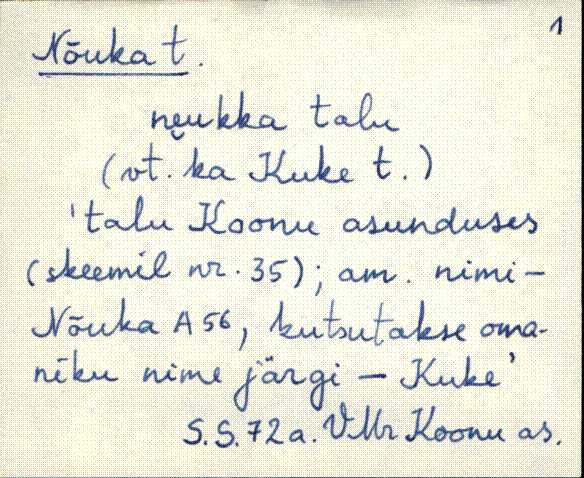 1
Nõuka t.
ne̮ukka talu
(vt. ka Kuke t.)
'talu Koonu asunduses
(skeemil nr. 35); am. nimi-
Nõuka A 56, kutsutakse oma-
niku nime järgi – Kuke'
S.S. 72 a. VMr Koonu as.